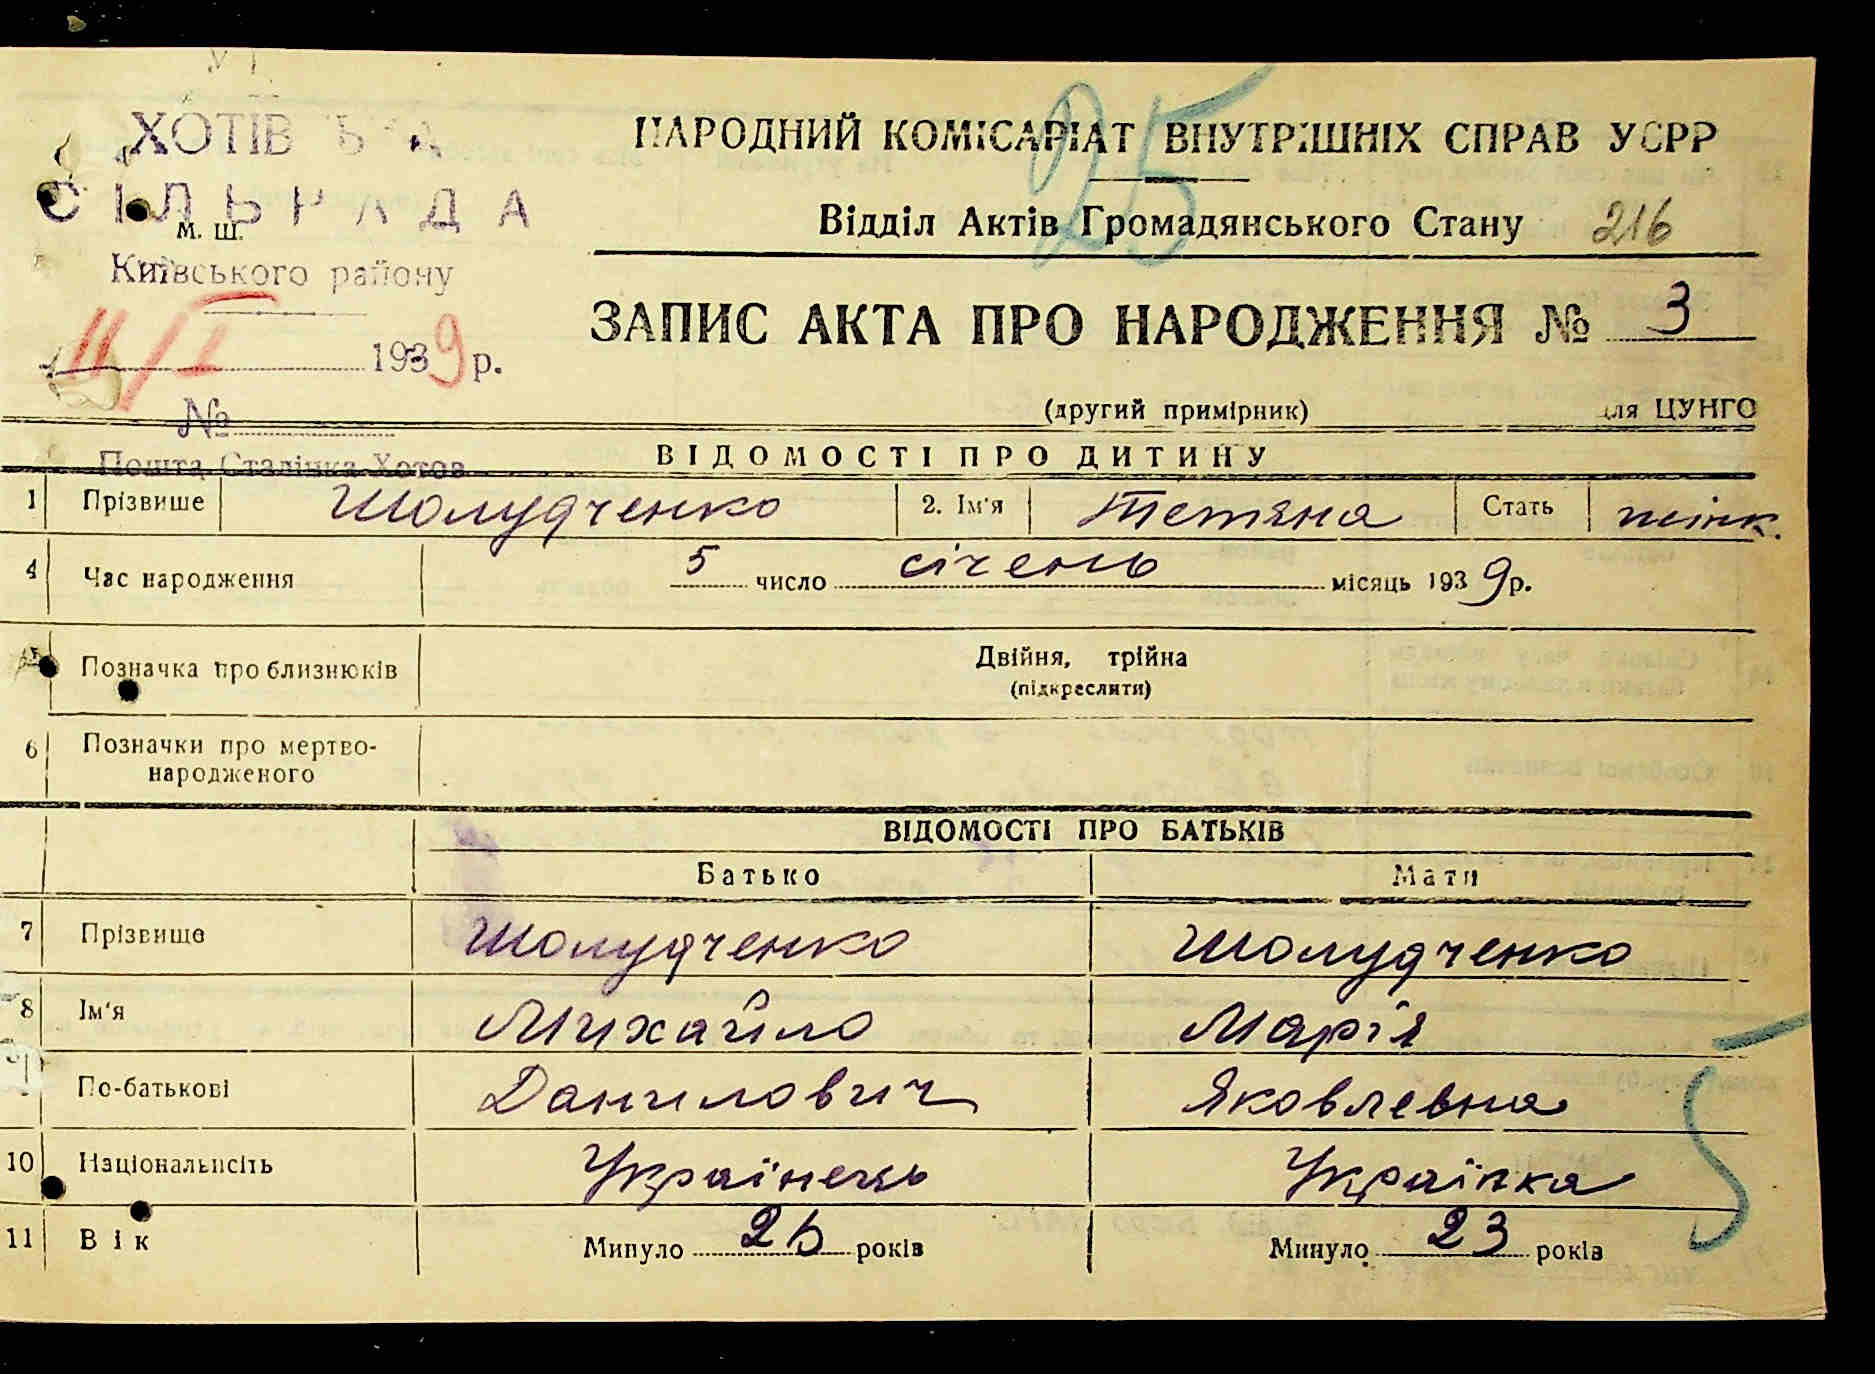 ХОТІВСЬКА
СІЛЬРАДА
м. ш.
Київського району
11/I 1939 р.
№
Пошта Сталінка-Хотов
25
НАРОДНИЙ КОМІСАРІАТ ВНУТРІШНІХ СПРАВ УСРР
Відділ Актів Громадянського Стану 216
ЗАПИС АКТА ПРО НАРОДЖЕННЯ № 3
(другий примірник) для ЦУНГО
ВІДОМОСТІ ПРО ДИТИНУ
1 Прізвище Шолудченко 2. Ім'я Тетяна Стать жінк.
4 Час народження 5 число січень місяць 1939 р.
Позначка про близнюків Двійня, трійна
(підкреслити)
6 Позначки про мертво-
народженого
ВІДОМОСТІ ПРО БАТЬКІВ
Батько Мати
7 Прізвище Шолудченко Шолудченко
8 Ім'я Михайло Марія
По-батькові Данилович Яковлевна
10 Національність Українець Українка
11 Вік Минуло років Минуло 23 років